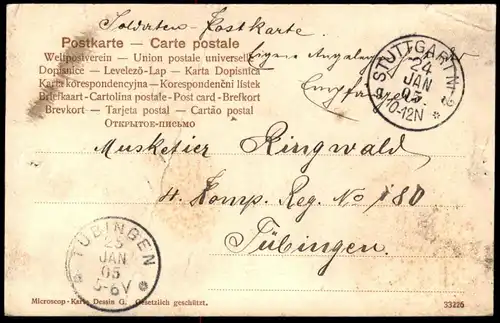 Soldaten-Postkarte.
Postkarte — Carte postale
Weltpostverein — Union postale universelle
Dopisnice — Levelező-Lap — Karta Dopisnica
Karta korespondencyjna — Korespondenční lístek
Briefkaart - Cartolina postale - Post card - Brefkort
Brevkort — Tarjeta postal — Cartão postal
ОТКРЫТОЕ-ПИСЬМО
Eigene Angelegenheit
Empfängers.
STUTTGART
24
JAN
05.
10-12N
Musketier Ringwald
4. Komp. Reg. No 180
Tübingen.
TÜBINGEN
25
JAN
05
5-6V
Microscop-Karte Dessin G. Gesetzlich geschützt.
33226